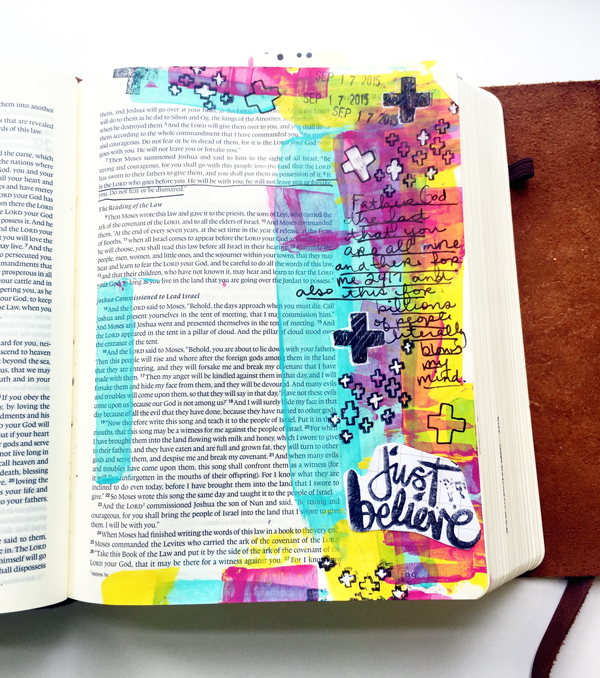 them into another
that are revealed
rds of this law.
nd the curse, which
the nations where
God, you and your
all your heart and
es and have mercy
where the LORD your
possess it. And he
d the LORD your God
LORD your God will
may live. And the
ho persecuted you.
mandments that I
prosperous in all
your cattle and in
pering you, as he
God, to keep
e Law, when you
ard for you, nei-
scend to heaven
beyond the sea,
us, that we may
uth and in your
If you obey the
by loving the
ndments and his
your God will
But if your heart
gods and serve
not live long in
call heaven and
death, blessing
loving the
your life and
to your fathers,
said to them.
e in. The LORD
himself will go
shall dispossess
them, and Joshua will go over at your
will do to them as he did to Sihon and Og, the kings of the Amorites,
when he destroyed them. And the LORD will give them over to you, and
them according to the whole commandment that I have commanded
and courageous. Do not fear or be in dread of them, for it is the LORD your God
goes with you. He will not leave you or forsake you."
7 Then Moses summoned Joshua and said to him in the sight of all Israel, "Be
strong and courageous, for you shall go with this people into the land that the LORD
has sworn to their fathers to give them, and you shall put them in possession of it.
is the LORD who goes before you. He will be with you; he will not leave you or forsake
you. Do not fear or be dismayed."
The Reading of the Law
9 Then Moses wrote this law and gave it to the priests, the sons of Levi, who carried the
ark of the covenant of the LORD, and to all the elders of Israel. 10 And Moses commanded
them, "At the end of every seven years, at the set time in the year of release, at the Feast
of Booths, 11 when all Israel comes to appear before the LORD your God
he will choose, you shall read this law before all Israel in their hearing.
people, men, women, and little ones, and the sojourner within your towns, that they may
hear and learn to fear the LORD your God, and be careful to do all the words of this law,
13 and that their children, who have not known it, may hear and learn to fear the LORD
your God, as long as you live in the land that you are going over the Jordan to possess."
Joshua Commissioned to Lead Israel
14 And the LORD said to Moses, "Behold, the days approach when you must die. Call
Joshua and present yourselves in the tent of meeting, that I may commission him."
And Moses and Joshua went and presented themselves in the tent of meeting. 15 And
the LORD appeared in the tent in a pillar of cloud. And the pillar of cloud stood over
the entrance of the tent.
16 And the LORD said to Moses, "Behold, you are about to lie down with your fathers.
Then this people will rise and whore after the foreign gods among them in the land
that they are entering, and they will forsake me and break my covenant that I have
made with them. 17 Then my anger will be kindled against them in that day, and I will
forsake them and hide my face from them, and they will be devoured. And many evils
and troubles will come upon them, so that they will say in that day, 'Have not these evils
come upon us because our God is not among us?' 18 And I will surely hide my face in that
day because of all the evil that they have done, because they have turned to other gods.
19 "Now therefore write this song and teach it to the people of Israel. Put it in their
mouths, that this song may be a witness for me against the people of Israel. 20 For when
I have brought them into the land flowing with milk and honey, which I swore to give
to their fathers, and they have eaten and are full and grown fat, they will turn to other
gods and serve them, and despise me and break my covenant. 21 And when many evils
and troubles have come upon them, this song shall confront them as a witness (for it
will live unforgotten in the mouths of their offspring). For I know what they are
inclined to do even today, before I have brought them into the land that I swore to
give." 22 So Moses wrote this song the same day and taught it to the people of Israel.
23 And the LORD commissioned Joshua the son of Nun and said, "Be strong and
courageous, for you shall bring the people of Israel into the land that I swore to give
them. I will be with you."
24 When Moses had finished writing the words of this law in a book to the very end,
25 Moses commanded the Levites who carried the ark of the covenant of the LORD,
26 "Take this Book of the Law and put it by the side of the ark of the covenant of the
LORD your God, that it may be there for a witness against you. 27 For I know
SEP 17 2015
SEP 17 2015
SEP 17 2015
Father God
the fact
that you
are all mine
and here for
me 24/7 and
also this for
billions
of people
literally
blows
my
mind.
just
believe